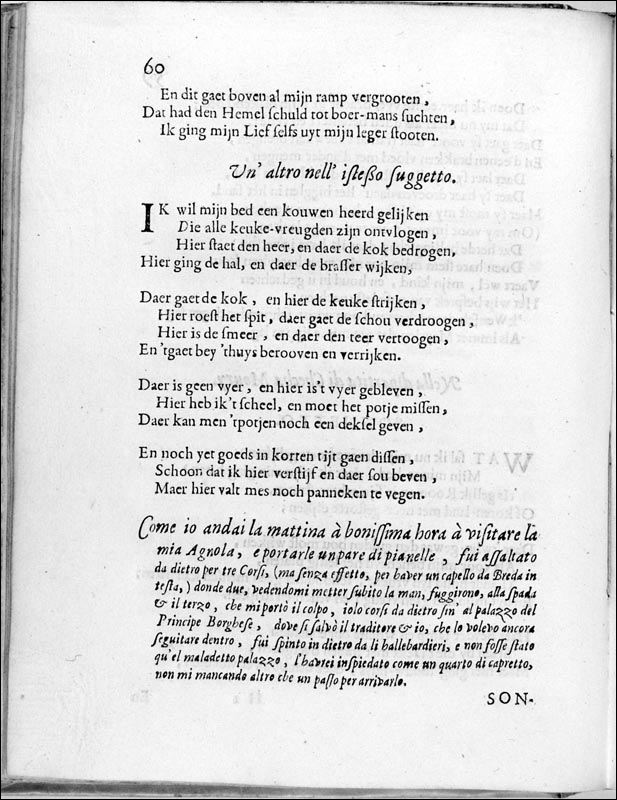 60
En dit gaet boven al mijn ramp vergrooten,
Dat had den Hemel schuld tot boer-mans suchten,
Ik ging mijn Lief selfs uyt mijn leger stooten.
Un' altro nell' istesso suggetto.
IK wil mijn bed een kouwen heerd gelijken
Die alle keuke-vreugden zijn ontvlogen,
Hier staet den heer, en daer de kok bedrogen,
Hier ging de hal, en daer de brasser wijken,
Daer gaet de kok, en hier de keuke strijken,
Hier roest het spit, daer gaet de schou verdroogen,
Hier is de smeer, en daer den teer vertoogen,
En 'tgaet bey 'thuys berooven en verrijken.
Daer is geen vyer, en hier is't vyer gebleven,
Hier heb ik't scheel, en moet het potje missen,
Daer kan men 'tpotjen noch een deksel geven,
En noch yet goeds in korten tijt gaen dissen,
Schoon dat ik hier verstijf en daer sou beven,
Maer hier valt mes noch panneken te vegen.
Come io andai la mattina à bonissima hora à visitare la
mia Agnola, e portarle un pare di pianelle, fui assaltato
da dietro per tre Corsi, (ma senza effetto, per haver un capello da Breda in
testa,) donde due, vedendomi metter subito la man, fuggirono, alla spada
& il terzo, che mi portò il colpo, io lo corsi da dietro sin' al palazzo del
Principe Borghese, dove si salvò il traditore & io, che lo volevo ancora
seguitare dentro, fui spinto in dietro da li hallebardieri, e non fosse stato
qu'el maladetto palazzo, l'havrei inspiedato come un quarto di capretto,
non mi mancando altro che un passo per arrivarlo.
SON-